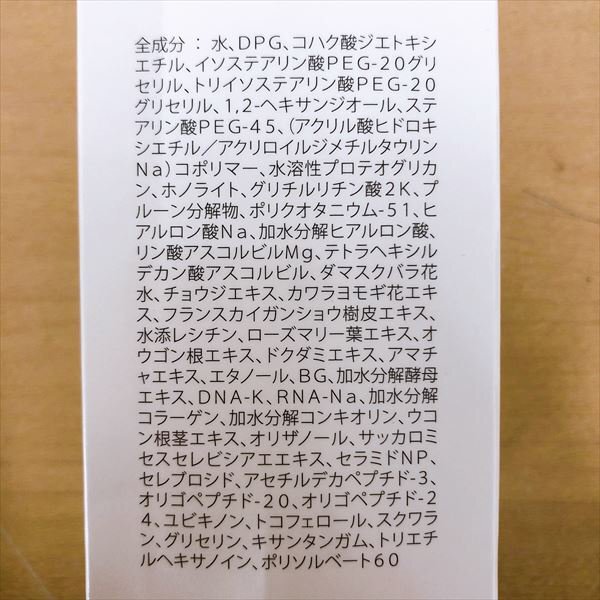 全成分 : 水、DPG、コハク酸ジエトキシ
エチル、イソステアリン酸PEG-20グリ
セリル、トリイソステアリン酸PEG-20
グリセリル、1,2-ヘキサンジオール、ステ
アリン酸PEG-45、(アクリル酸ヒドロキ
シエチル/アクリロイルジメチルタウリン
Na)コポリマー、水溶性プロテオグリカ
ン、ホノライト、グリチルリチン酸2K、プ
ルーン分解物、ポリクオタニウム-51、ヒ
アルロン酸Na、加水分解ヒアルロン酸、
リン酸アスコルビルMg、テトラヘキシル
デカン酸アスコルビル、ダマスクバラ花
水、チョウジエキス、カワラヨモギ花エキ
ス、フランスカイガンショウ樹皮エキス、
水添レシチン、ローズマリー葉エキス、オ
ウゴン根エキス、ドクダミエキス、アマチ
ャエキス、エタノール、BG、加水分解酵母
エキス、DNA-K、RNA-Na、加水分解
コラーゲン、加水分解コンキオリン、ウコ
ン根茎エキス、オリザノール、サッカロミ
セスセレビシアエエキス、セラミドNP、
セレブロシド、アセチルデカペプチド-3、
オリゴペプチド-20、オリゴペプチド-2
4、ユビキノン、トコフェロール、スクワラ
ン、グリセリン、キサンタンガム、トリエチ
ルヘキサノイン、ポリソルベート60